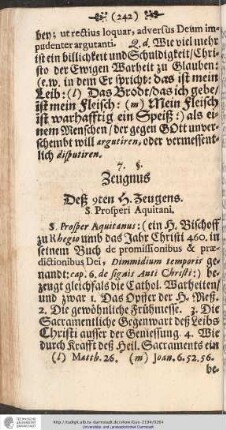 (242)
bey: ut rectius loquar, adversus Deum im-
pudenter argutanti. Q. d. Wie viel mehr
ist ein billichkeit und Schuldigkeit/Chri-
sto der Ewigen Warheit zu Glauben:
(e.w. in dem Er spricht: das ist mein
Leib: (l) Das Brodt/das ich gebe/
ist mein Fleisch: (m) Mein Fleisch
ist warhafftig ein Speiß:) als ei-
nem Menschen/der gegen GOtt unver-
schembt will argutiren, oder vermessent-
lich disputiren.
7. §.
Zeugnus
Deß 9ten H. Zeugens.
S. Prosperi Aquitani.
S. Prosper Aquitanus: (ein H. Bischoff
zu Rhegio umb das Jahr Christi 460. in
seinem Buch de promissionibus & præ-
dictionibus Dei, Dimmidium temporis ge-
nandt: cap. 6. de signis Anti Christi:) be-
zeugt gleichfals die Cathol. Warheiten/
und zwar 1. Das Opffer der H. Meß.
2. Die gewöhnliche Frühmesse. 3. Die
Sacramentliche Gegenwart deß Leibs
Christi ausser der Geniessung. 4. Wie
durch Krafft deß Heil. Sacraments ein
(l) Matth. 26. (m) Joan. 6. 52. 56.
be-